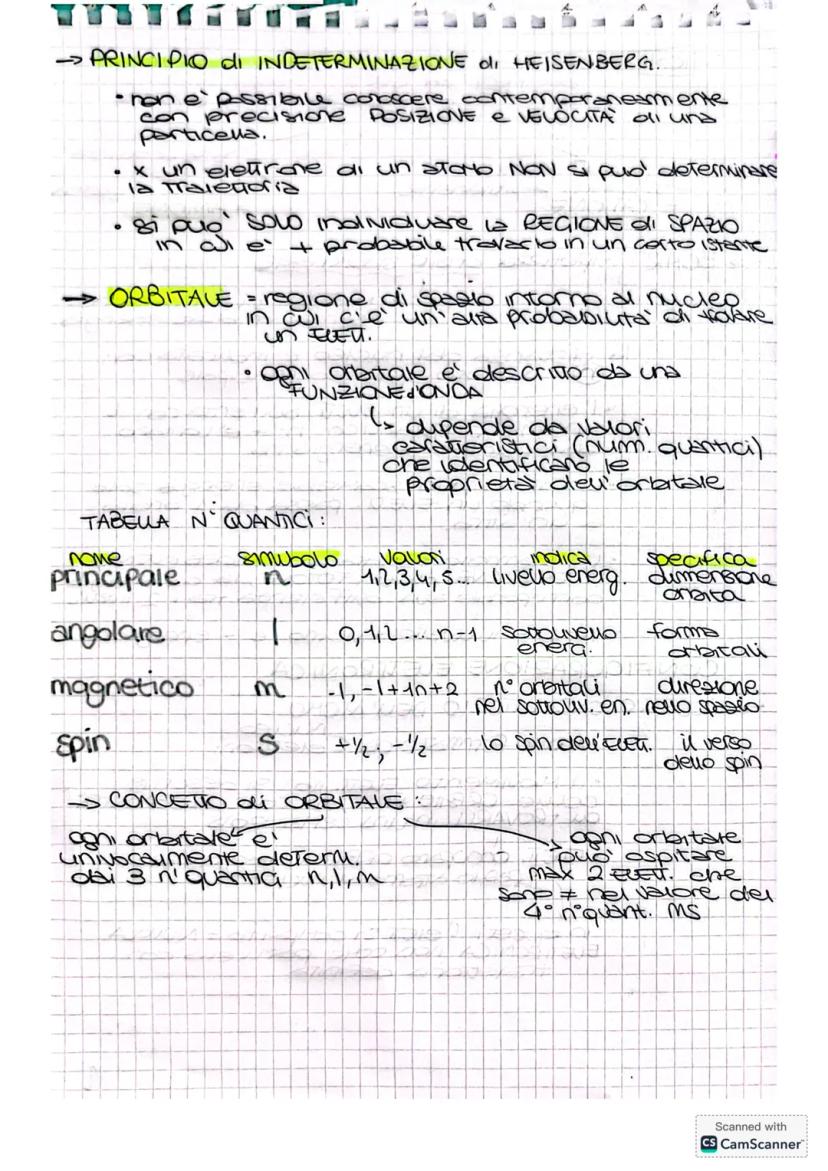 → PRINCIPIO di INDETERMINAZIONE di HEISENBERG.
• non e' possibile conoscere contemporaneamente
con precisione POSIZIONE e VELOCITA' di una
particella.
• x un elettrone di un atomo NON si puo' determinare
la traiettoria
• si puo' SOLO individuare la REGIONE di SPAZIO
in cui e' + probabile trovarlo in un certo istante
→ ORBITALE = regione di spazio intorno al nucleo
in cui c'e' un'alta probabilita' di trovare
un ELETT.
• ogni orbitale e' descritto da una
FUNZIONE d'ONDA
↳ dipende da valori
caratteristici (num. quantici)
che identificano le
proprieta' dell'orbitale
TABELLA N° QUANTICI:
nome simbolo valori indica specifica
principale n 1,2,3,4,5... livello energ. dimensione
orbita
angolare l 0,1,2... n-1 sottolivello forma
energ. orbitali
magnetico m -1, -1+1n+2 n° orbitali direzione
nel sottoliv. en. nello spazio
spin S +1/2; -1/2 lo spin dell'ELETT. il verso
dello spin
→ CONCETTO di ORBITALE:
ogni orbitale e'
univocamente determ.
dai 3 n° quantici n,l,m
ogni orbitale
puo' ospitare
max 2 ELETT. che
sono ≠ nel valore del
4° n°quant. MS
Scanned with
CS CamScanner